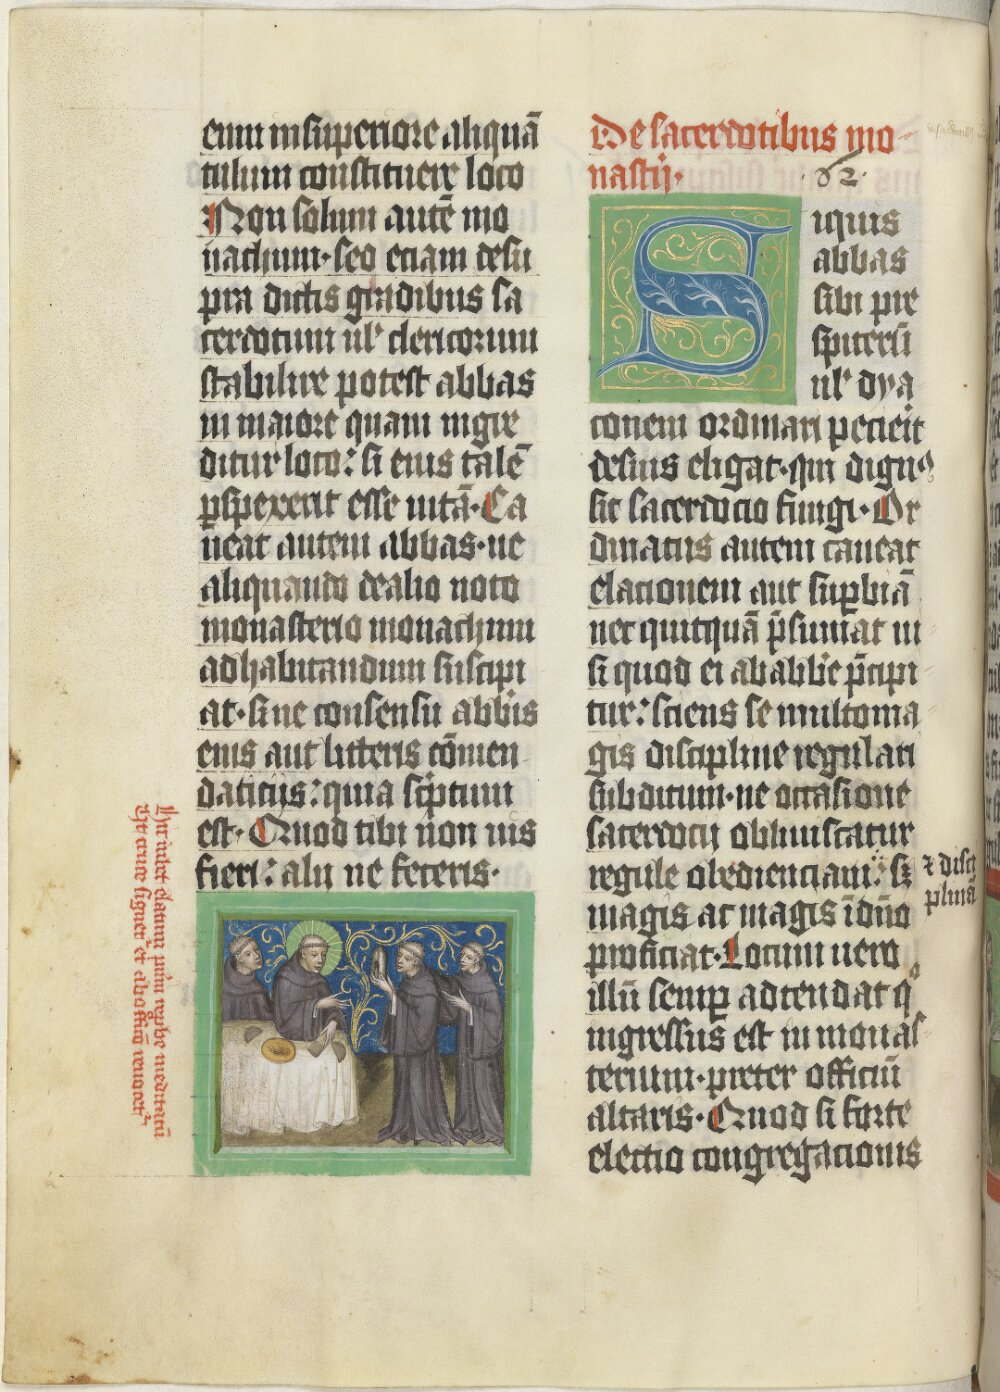 eum in superiore aliquā
tulum constituere loco
Non solum autē mo
nachum · sed etiam desu
pra dictis gradibus sa
cerdotum ul' clericorum
stabilire potest abbas
in maiore quam ingre
ditur loco : si eius talē
ꝑspexerit esse uitā · Ca
ueat autem abbas · ne
aliquando de alio noto
monasterio monachum
ad habitandum suscipi
at · sine consensu abb̄is
eius aut litteris cōmen
daticijs : quia sc̄ptum
est · Quod tibi non uis
fieri : alij ne feceris ·
De sacerdotibus mo
nastīj · 62
Siquis
abbas
sibi pre
sp̄iterū
ul' dya
conem ordinari pecieit
de suis eligat · qui dignꝰ
sit sacerdocio fungi · Or
dinatus autem caueat
elacionem aut suꝑbiā
nec quitquā p̄sumat ni
si quod ei ab abb̄e p̄cipi
tur : sciens se multo ma
gis discipline regulari
subditum · ne occasione
sacerdocij obliuiscatur
regule obedienciam : sꝫ
⁊ disci
plinā
magis ac magis ī dn̄o
proficiat · Locum uero
illū semꝑ adtendat qͦ
ingressus est in monas
terium · preter officiū
altaris · Quod si forte
electio congregacionis